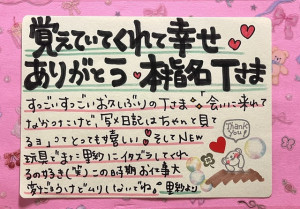 覚えていてくれて幸せ
ありがとう 本指名Tさま
すっごいすっごいお久しぶりのTさま 会いに来れて
なかったけど、写メ日記はちゃんと見て
るョ ってとっても嬉しい そしてNEW
玩具でまた里紗にイタズラしてくれ
るのかな(笑) この時期お仕事大
変だろうけどムリしないでね 里紗より
Thank
you!